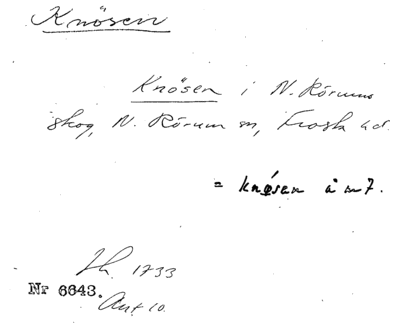 Knösen
Knösen i N. Rörums
skog, N. Rörum sn, Frosta hd.
= knösen å m 7.
Jh. 1733
Nr 6643.
Ant 10.